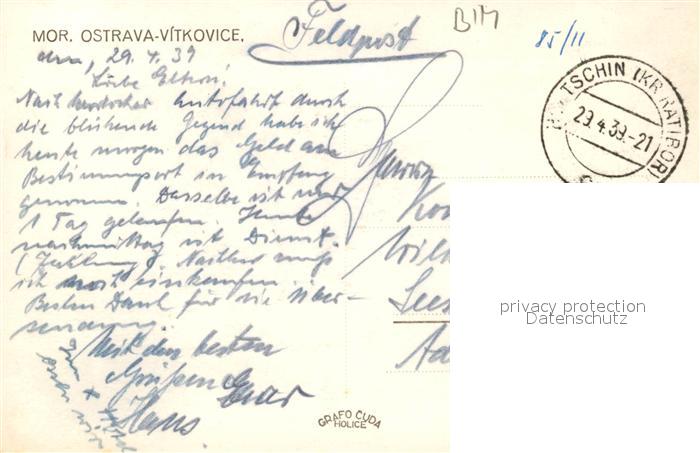 MOR. OSTRAVA-VÍTKOVICE,
den, 29. 4. 39
Feldpost
B1M
85/11
HULTSCHIN (KR RATIBOR)
29.4.39.-21
Liebe Eltern!
Nach Autofahrt durch
die blühende Gegend habe ich
heute morgen das Geld am
Bestimmungsort in Empfang
genommen. Dasselbe ist nur
1 Tag gelaufen. Heute
nachmittag ist Dienst.
(Zahlung). Nachher muß
ich noch einkaufen.
Besten Dank für die Über-
sendung.
Mit den besten
Grüßen Euer
Hans
Wilh
See
GRAFO ČUDA
HOLICE
privacy protection
Datenschutz